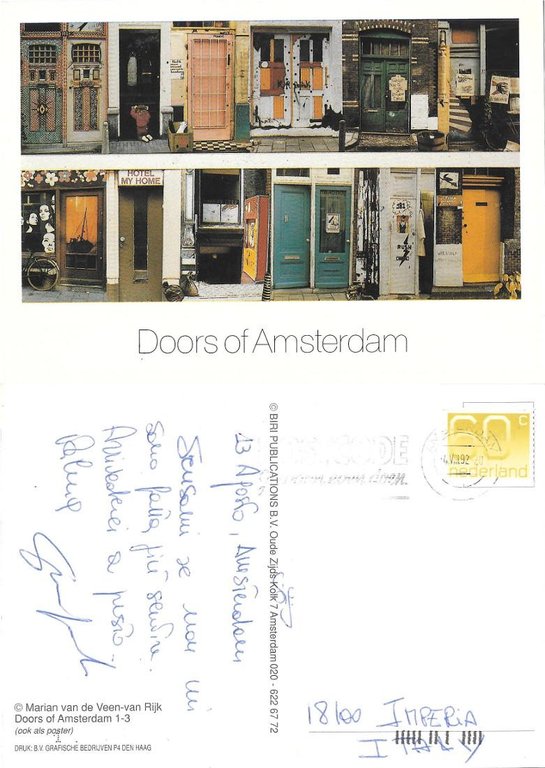 HOTEL
MY HOME
Doors of Amsterdam
13 Agosto, Amsterdam
Scusami se non mi
sono fatta più sentire.
a presto.
© BIRI PUBLICATIONS B.V. Oude Zijds Kolk 7 Amsterdam 020 - 622 67 72
60 c
nederland
VIII 92
© Marian van de Veen-van Rijk
Doors of Amsterdam 1-3
(ook als poster)
DRUK: B.V. GRAFISCHE BEDRIJVEN P4 DEN HAAG
18100 IMPERIA
ITALY